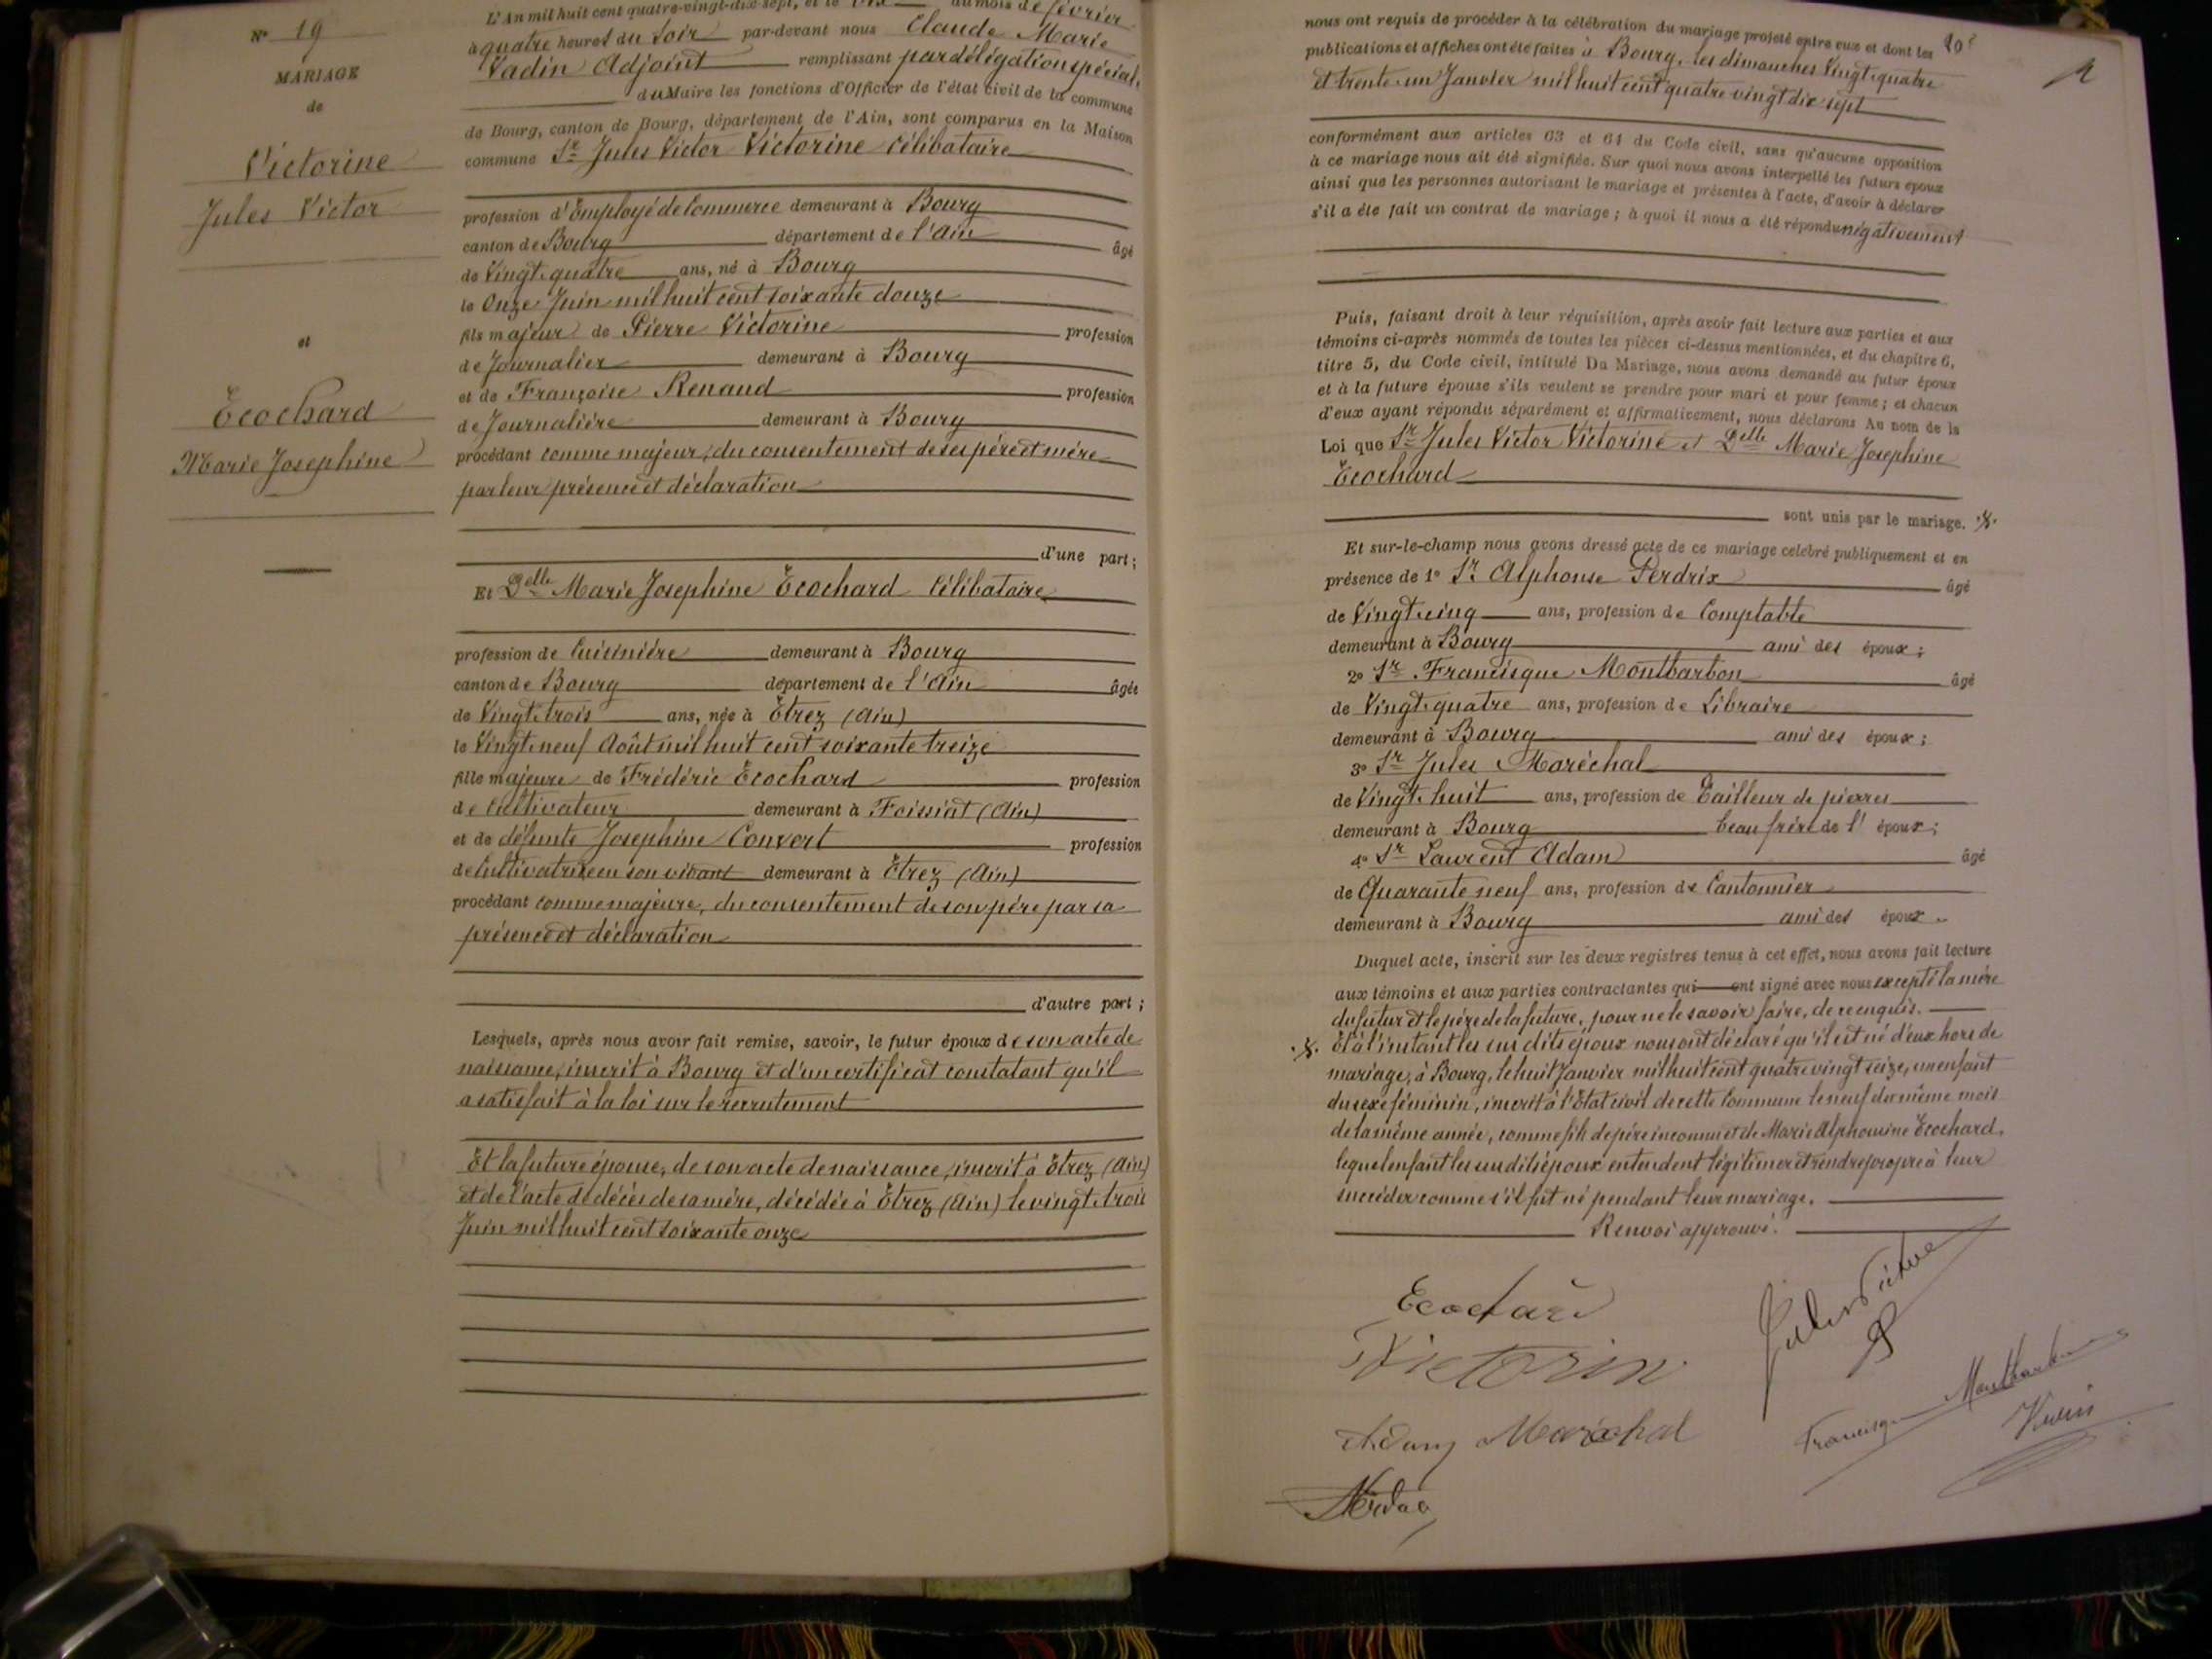 N° 19
MARIAGE
de
Victorine
Jules Victor
et
Ecochard
Marie Josephine
L'An mil huit cent quatre-vingt-dix-sept, et le Dix du mois de février
à quatre heures du Soir par-devant nous Claude Marie
Vadin Adjoint remplissant par délégation spéciale
du Maire les fonctions d'Officier de l'état civil de la commune
de Bourg, canton de Bourg, département de l'Ain, sont comparus en la Maison
commune Sr Jules Victor Victorine Célibataire
profession d'Employé de Commerce demeurant à Bourg
canton de Bourg département de l'Ain âgé
de Vingt-quatre ans, né à Bourg
le Onze Juin mil huit cent soixante douze
fils majeur de Pierre Victorine profession
de Journalier demeurant à Bourg
et de Françoise Renaud profession
de Journalière demeurant à Bourg
procédant comme majeur, du consentement de ses père et mère
par leur présence et déclaration
d'une part ;
Et Delle Marie Josephine Ecochard Célibataire
profession de Cuisinière demeurant à Bourg
canton de Bourg département de l'Ain âgée
de Vingt-trois ans, née à Etrez (Ain)
le Vingt-neuf Août mil huit cent soixante treize
fille majeure de Frédéric Ecochard profession
de Cultivateur demeurant à Foissiat (Ain)
et de défunte Josephine Convert profession
de Cultivatrice en son vivant demeurant à Etrez (Ain)
procédant comme majeure, du consentement de son père par sa
présence et déclaration
d'autre part ;
Lesquels, après nous avoir fait remise, savoir, le futur époux de son acte de
naissance, inscrit à Bourg et d'un certificat constatant qu'il
a satisfait à la loi sur le recrutement
Et la future épouse, de son acte de naissance, inscrit à Etrez (Ain)
et de l'acte de décès de sa mère, décédée à Etrez (Ain) le vingt-trois
Juin mil huit cent soixante onze
nous ont requis de procéder à la célébration du mariage projeté entre eux et dont les
publications et affiches ont été faites à Bourg, les dimanches Vingt-quatre
et trente-un Janvier mil huit cent quatre vingt dix sept
conformément aux articles 63 et 64 du Code civil, sans qu'aucune opposition
à ce mariage nous ait été signifiée. Sur quoi nous avons interpellé les futurs époux
ainsi que les personnes autorisant le mariage et présentes à l'acte, d'avoir à déclarer
s'il a été fait un contrat de mariage ; à quoi il nous a été répondu négativement
Puis, faisant droit à leur réquisition, après avoir fait lecture aux parties et aux
témoins ci-après nommés de toutes les pièces ci-dessus mentionnées, et du chapitre 6,
titre 5, du Code civil, intitulé Du Mariage, nous avons demandé au futur époux
et à la future épouse s'ils veulent se prendre pour mari et pour femme ; et chacun
d'eux ayant répondu séparément et affirmativement, nous déclarons Au nom de la
Loi que Sr Jules Victor Victorine et Delle Marie Josephine
Ecochard
sont unis par le mariage.
Et sur-le-champ nous avons dressé acte de ce mariage celebré publiquement et en
présence de 1° Sr Alphonse Perdrix âgé
de Vingt-cinq ans, profession de Comptable
demeurant à Bourg ami des époux ;
2° Sr Francisque Montbarbon âgé
de Vingt-quatre ans, profession de Libraire
demeurant à Bourg ami des époux ;
3° Sr Jules Maréchal
de Vingt-huit ans, profession de Tailleur de pierres
demeurant à Bourg beau frère de l' époux ;
4° Sr Laurent Adam âgé
de Quarante neuf ans, profession de Cantonnier
demeurant à Bourg ami des époux.
Duquel acte, inscrit sur les deux registres tenus à cet effet, nous avons fait lecture
aux témoins et aux parties contractantes qui ont signé avec nous excepté la mère
du futur et le père de la future, pour ne le savoir faire, de ce enquis.
Et à l'instant les sus dits époux nous ont déclaré qu'il est né d'eux hors de
mariage, à Bourg, le huit Janvier mil huit cent quatre vingt seize, un enfant
du sexe féminin, inscrit à l'Etat civil de cette Commune le neuf du même mois
de la même année, comme fils de père inconnu et de Marie Alphonsine Ecochard,
lequel enfant les sus dits époux entendent légitimer et rendre propre à leur
succéder comme s'il fut né pendant leur mariage.
Renvoi approuvé.
Ecochard
Victorin
Adam Maréchal
Francisque Montbarbon